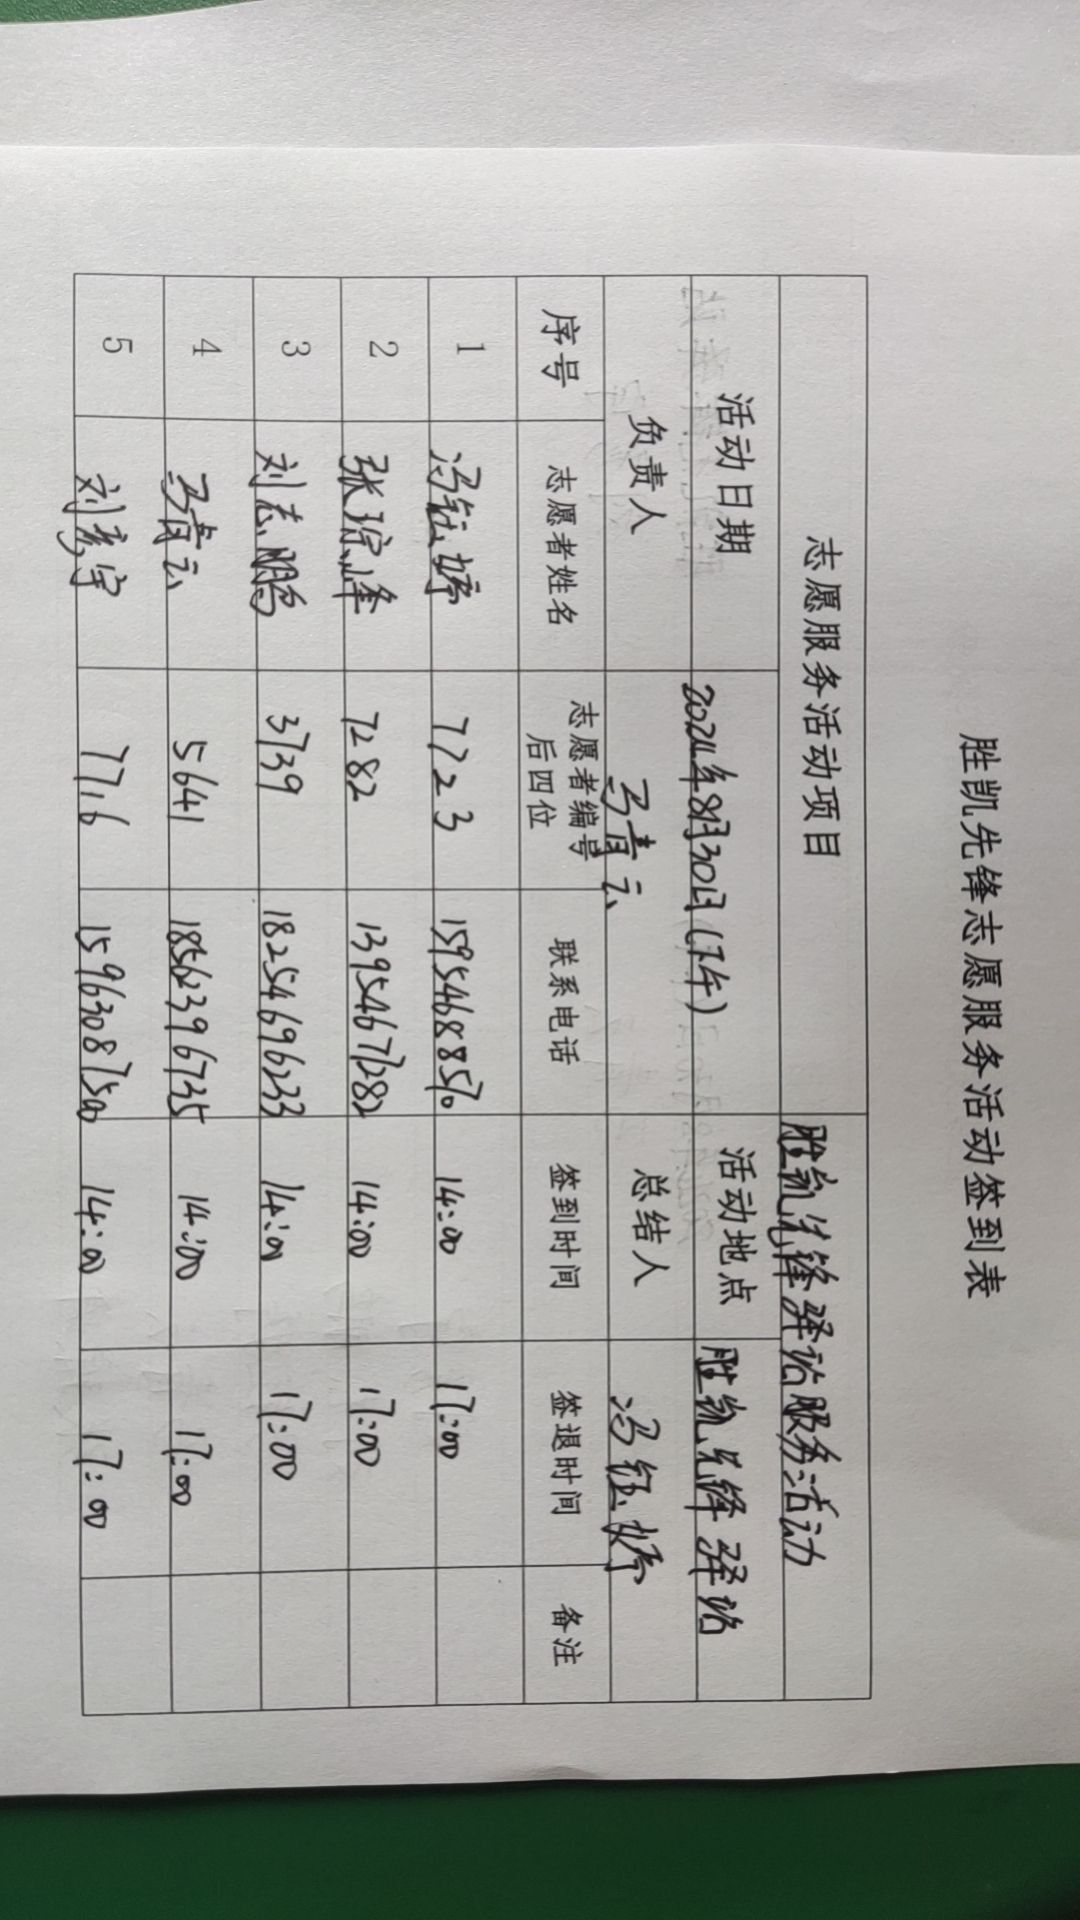 胜凯先锋志愿服务活动签到表
志愿服务活动项目 胜凯先锋驿站服务活动
活动日期 2024年8月30日(下午) 活动地点 胜凯先锋驿站
负责人 马青云 总结人 冯钰婷
序号 志愿者姓名 志愿者编号后四位 联系电话 签到时间 签退时间 备注
1 冯钰婷 7723 15954688570 14:00 17:00
2 张琮峰 7282 13954677282 14:00 17:00
3 刘志鹏 3739 18254696233 14:00 17:00
4 马青云 5641 18562396735 14:00 17:00
5 刘彦宇 7716 15963087500 14:00 17:00